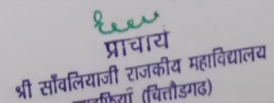 प्राचार्य
श्री साँवलियाजी राजकीय महाविद्यालय
(चित्तौडगढ)